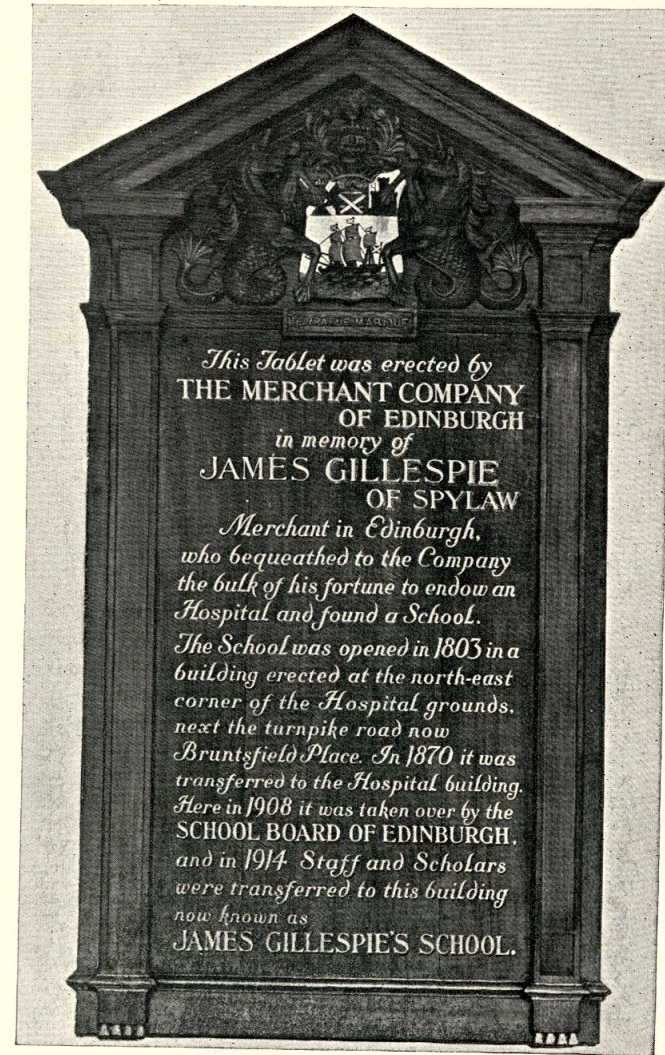 TERRAQUE MARIQUE
This Tablet was erected by
THE MERCHANT COMPANY
OF EDINBURGH
in memory of
JAMES GILLESPIE
OF SPYLAW
Merchant in Edinburgh,
who bequeathed to the Company
the bulk of his fortune to endow an
Hospital and found a School.
The School was opened in 1803 in a
building erected at the north-east
corner of the Hospital grounds,
next the turnpike road now
Bruntsfield Place. In 1870 it was
transferred to the Hospital building.
Here in 1908 it was taken over by the
SCHOOL BOARD OF EDINBURGH,
and in 1914 Staff and Scholars
were transferred to this building
now known as
JAMES GILLESPIE'S SCHOOL.